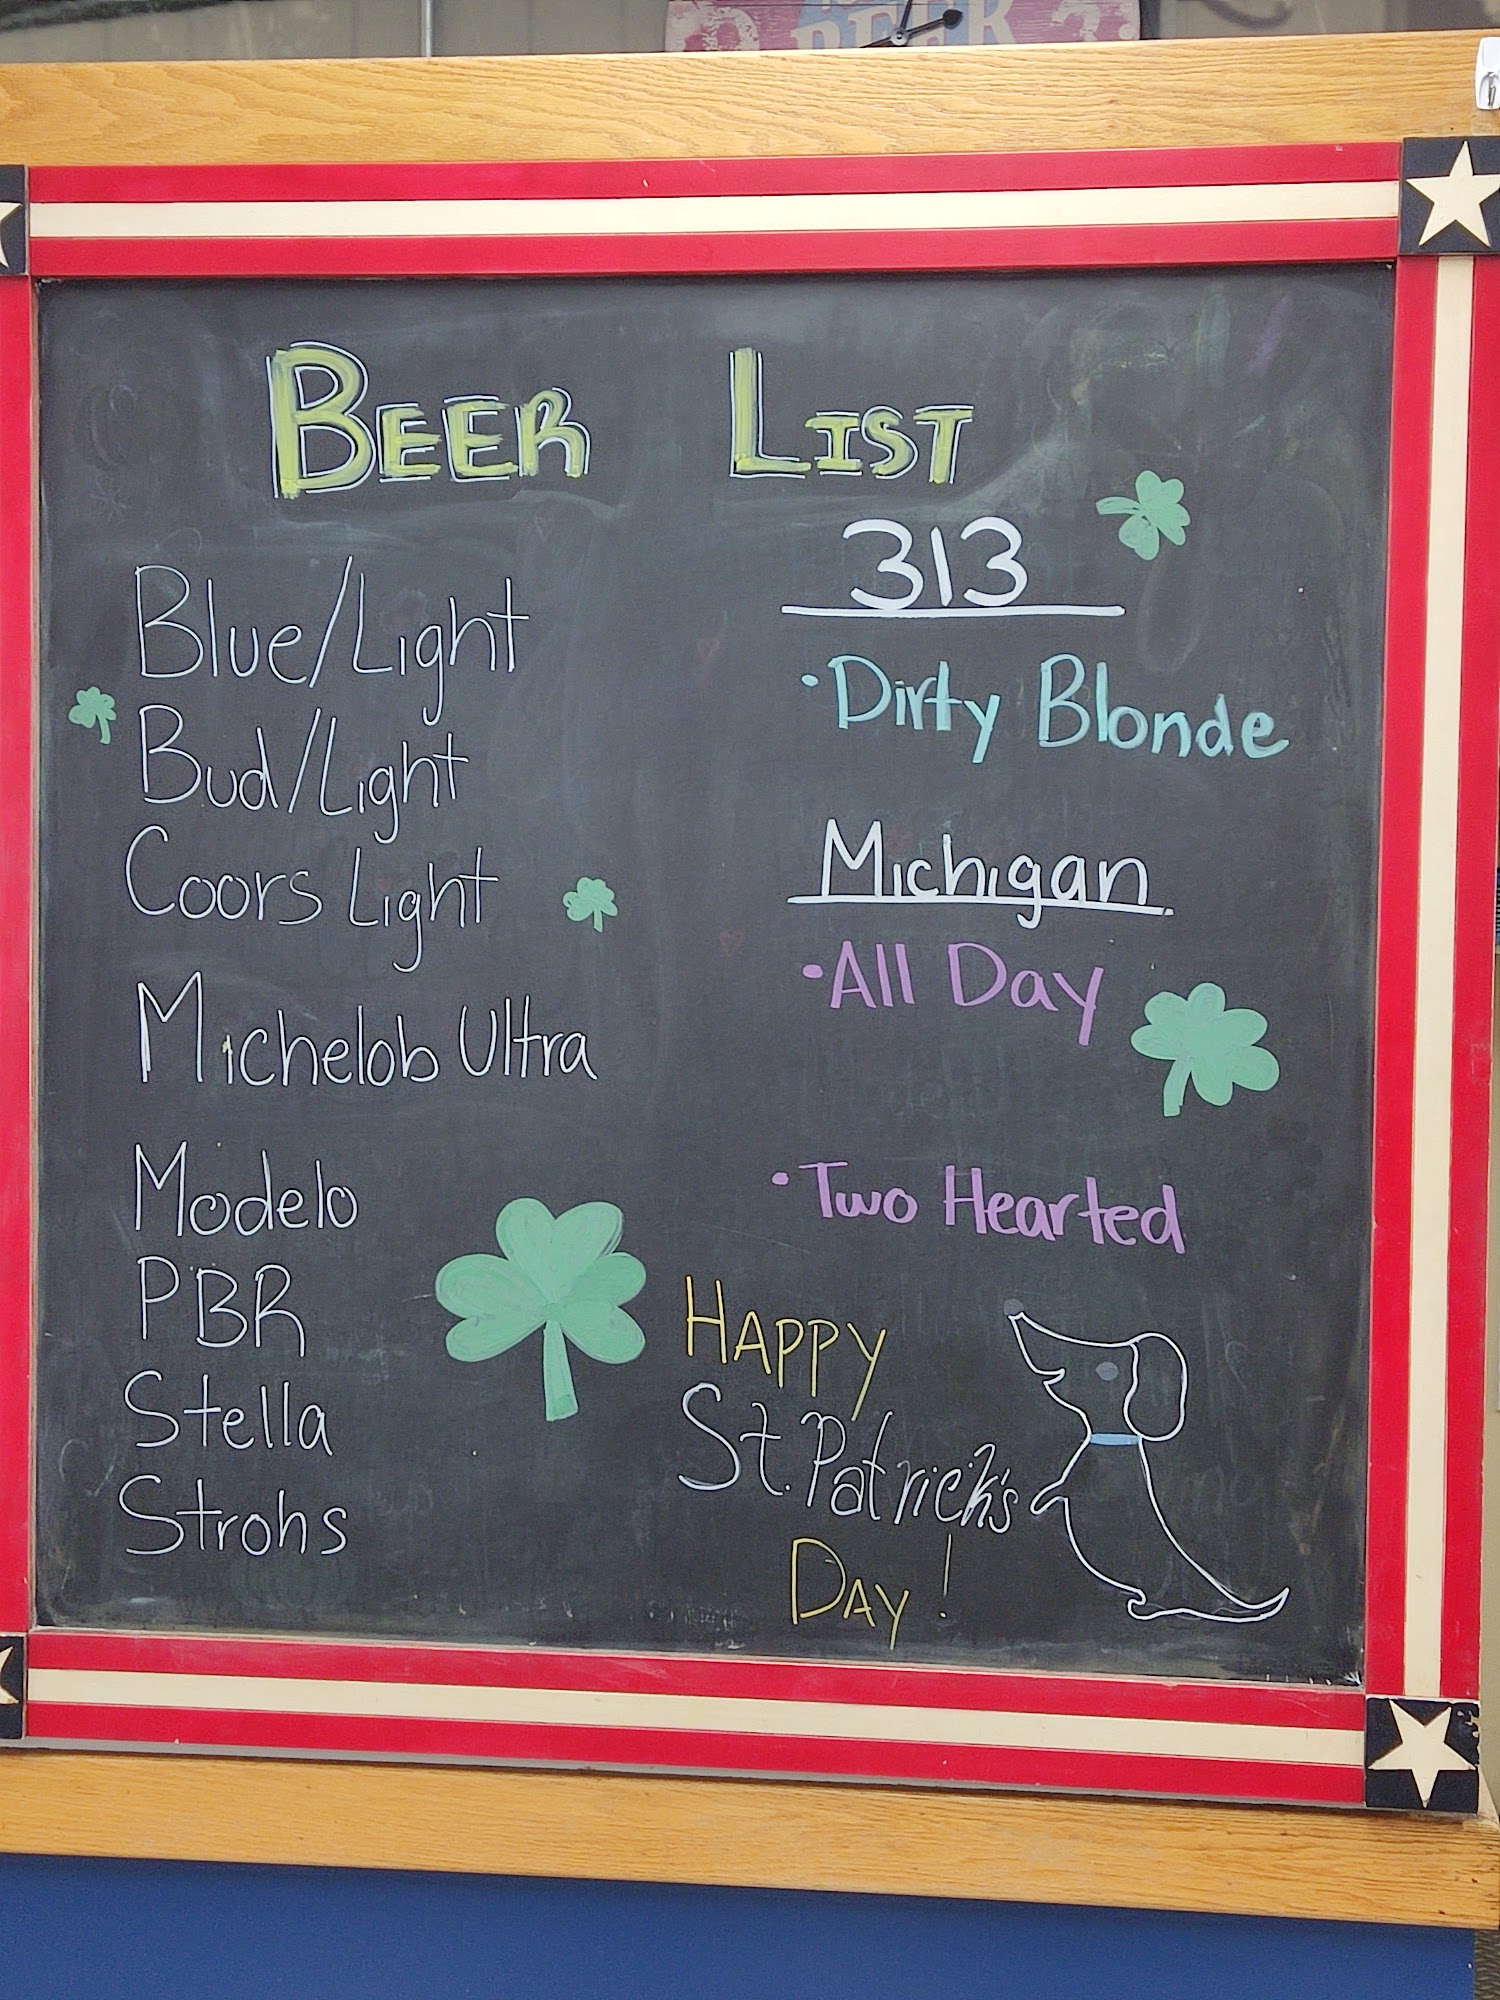 BEER
BEER LIST
Blue/Light
Bud/Light
Coors Light
Michelob Ultra
Modelo
PBR
Stella
Strohs
313
·Dirty Blonde
Michigan
·All Day
·Two Hearted
HAPPY
St. Patrick's
DAY!